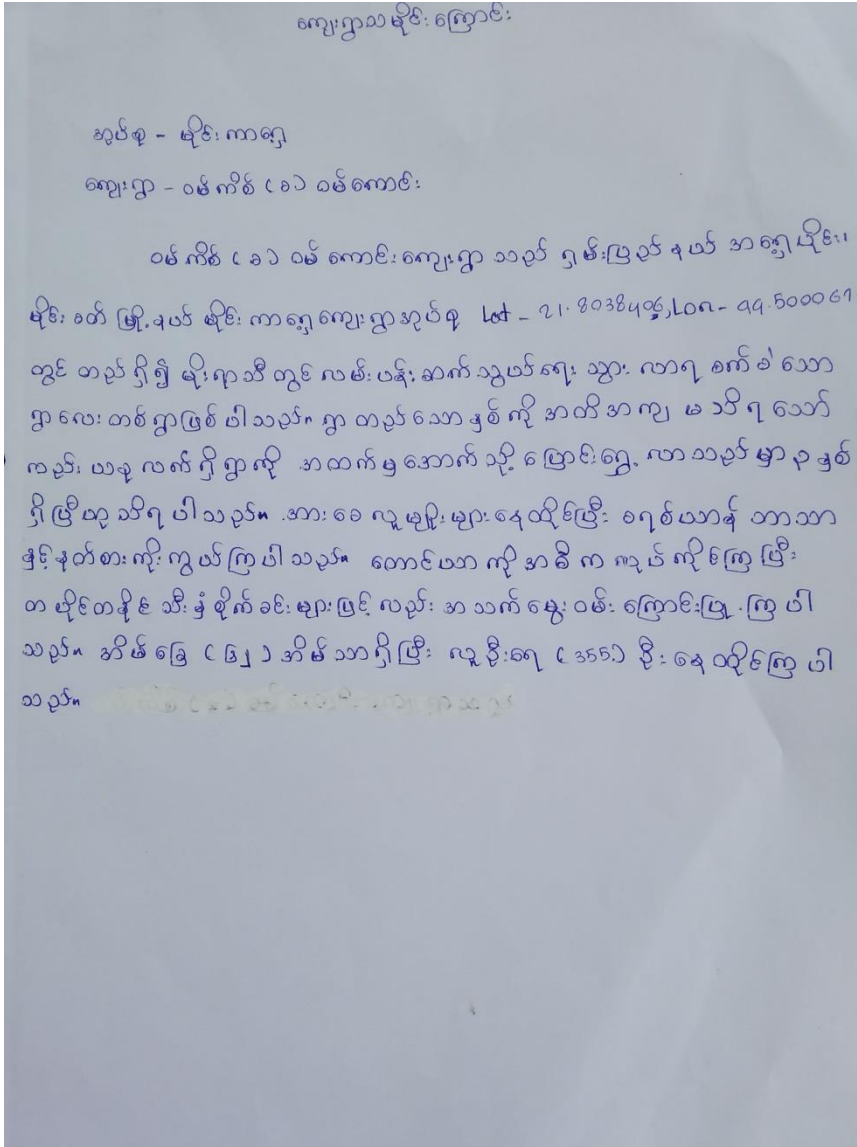 ကျေးရွာသမိုင်းကြောင်း
အုပ်စု - မိုင်းကာရှေ့
ကျေးရွာ - ဝမ်ကိစ် (ခ) ဝမ်ကောင်း
ဝမ်ကိစ် (ခ) ဝမ်ကောင်းကျေးရွာ သည် ရှမ်းပြည်နယ် အရှေ့ပိုင်း၊
မိုင်းခတ်မြို့နယ် မိုင်းကာရှေ့ကျေးရွာအုပ်စု Lat - 21.8038406, Lon - 99.500061
တွင် တည်ရှိ၍ မိုးရာသီတွင် လမ်းပန်းဆက်သွယ်ရေး သွားလာရ ခက်ခဲသော
ရွာလေးတစ်ရွာဖြစ်ပါသည်။ ရွာ တည်သောနှစ်ကို အတိအကျ မသိရသော်
လည်း ယခုလတ်ရှိရွာကို အထက်မှအောက်သို့ ပြောင်းရွှေ့လာသည်မှာ ၃ နှစ်
ရှိပြီဟု သိရပါသည်။ အားခေလူမျိုးများနေထိုင်ပြီး ခရစ်ယာန် ဘာသာ
နှင့်နတ်စားကိုးကွယ်ကြပါသည်။ တောင်ယာကိုအဓိကလုပ်ကိုင်ကြပြီး
တပိုင်တနိုင် သီးနှံစိုက်ခင်းများဖြင့်လည်း အသက်မွေးဝမ်းကြောင်းပြုကြပါ
သည်။ အိမ်ခြေ (၆၂) အိမ်သာရှိပြီး လူဦးရေ (355) ဦး နေထိုင်ကြပါ
သည်။